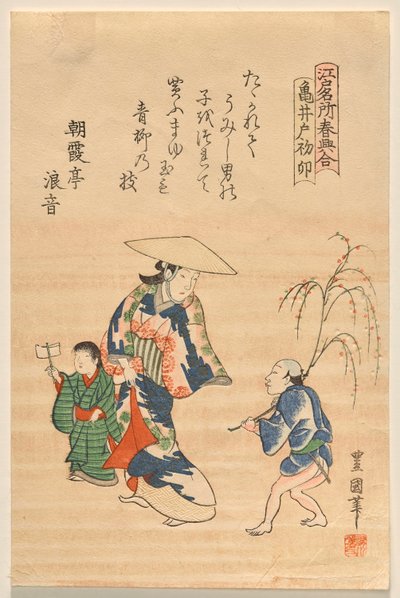 江戸名所春興合
亀井戸初卯
たゝかれて
うみし男の
子をつれて
買ふまゆ玉も
青柳の枝
朝霞亭
浪音
豊國筆